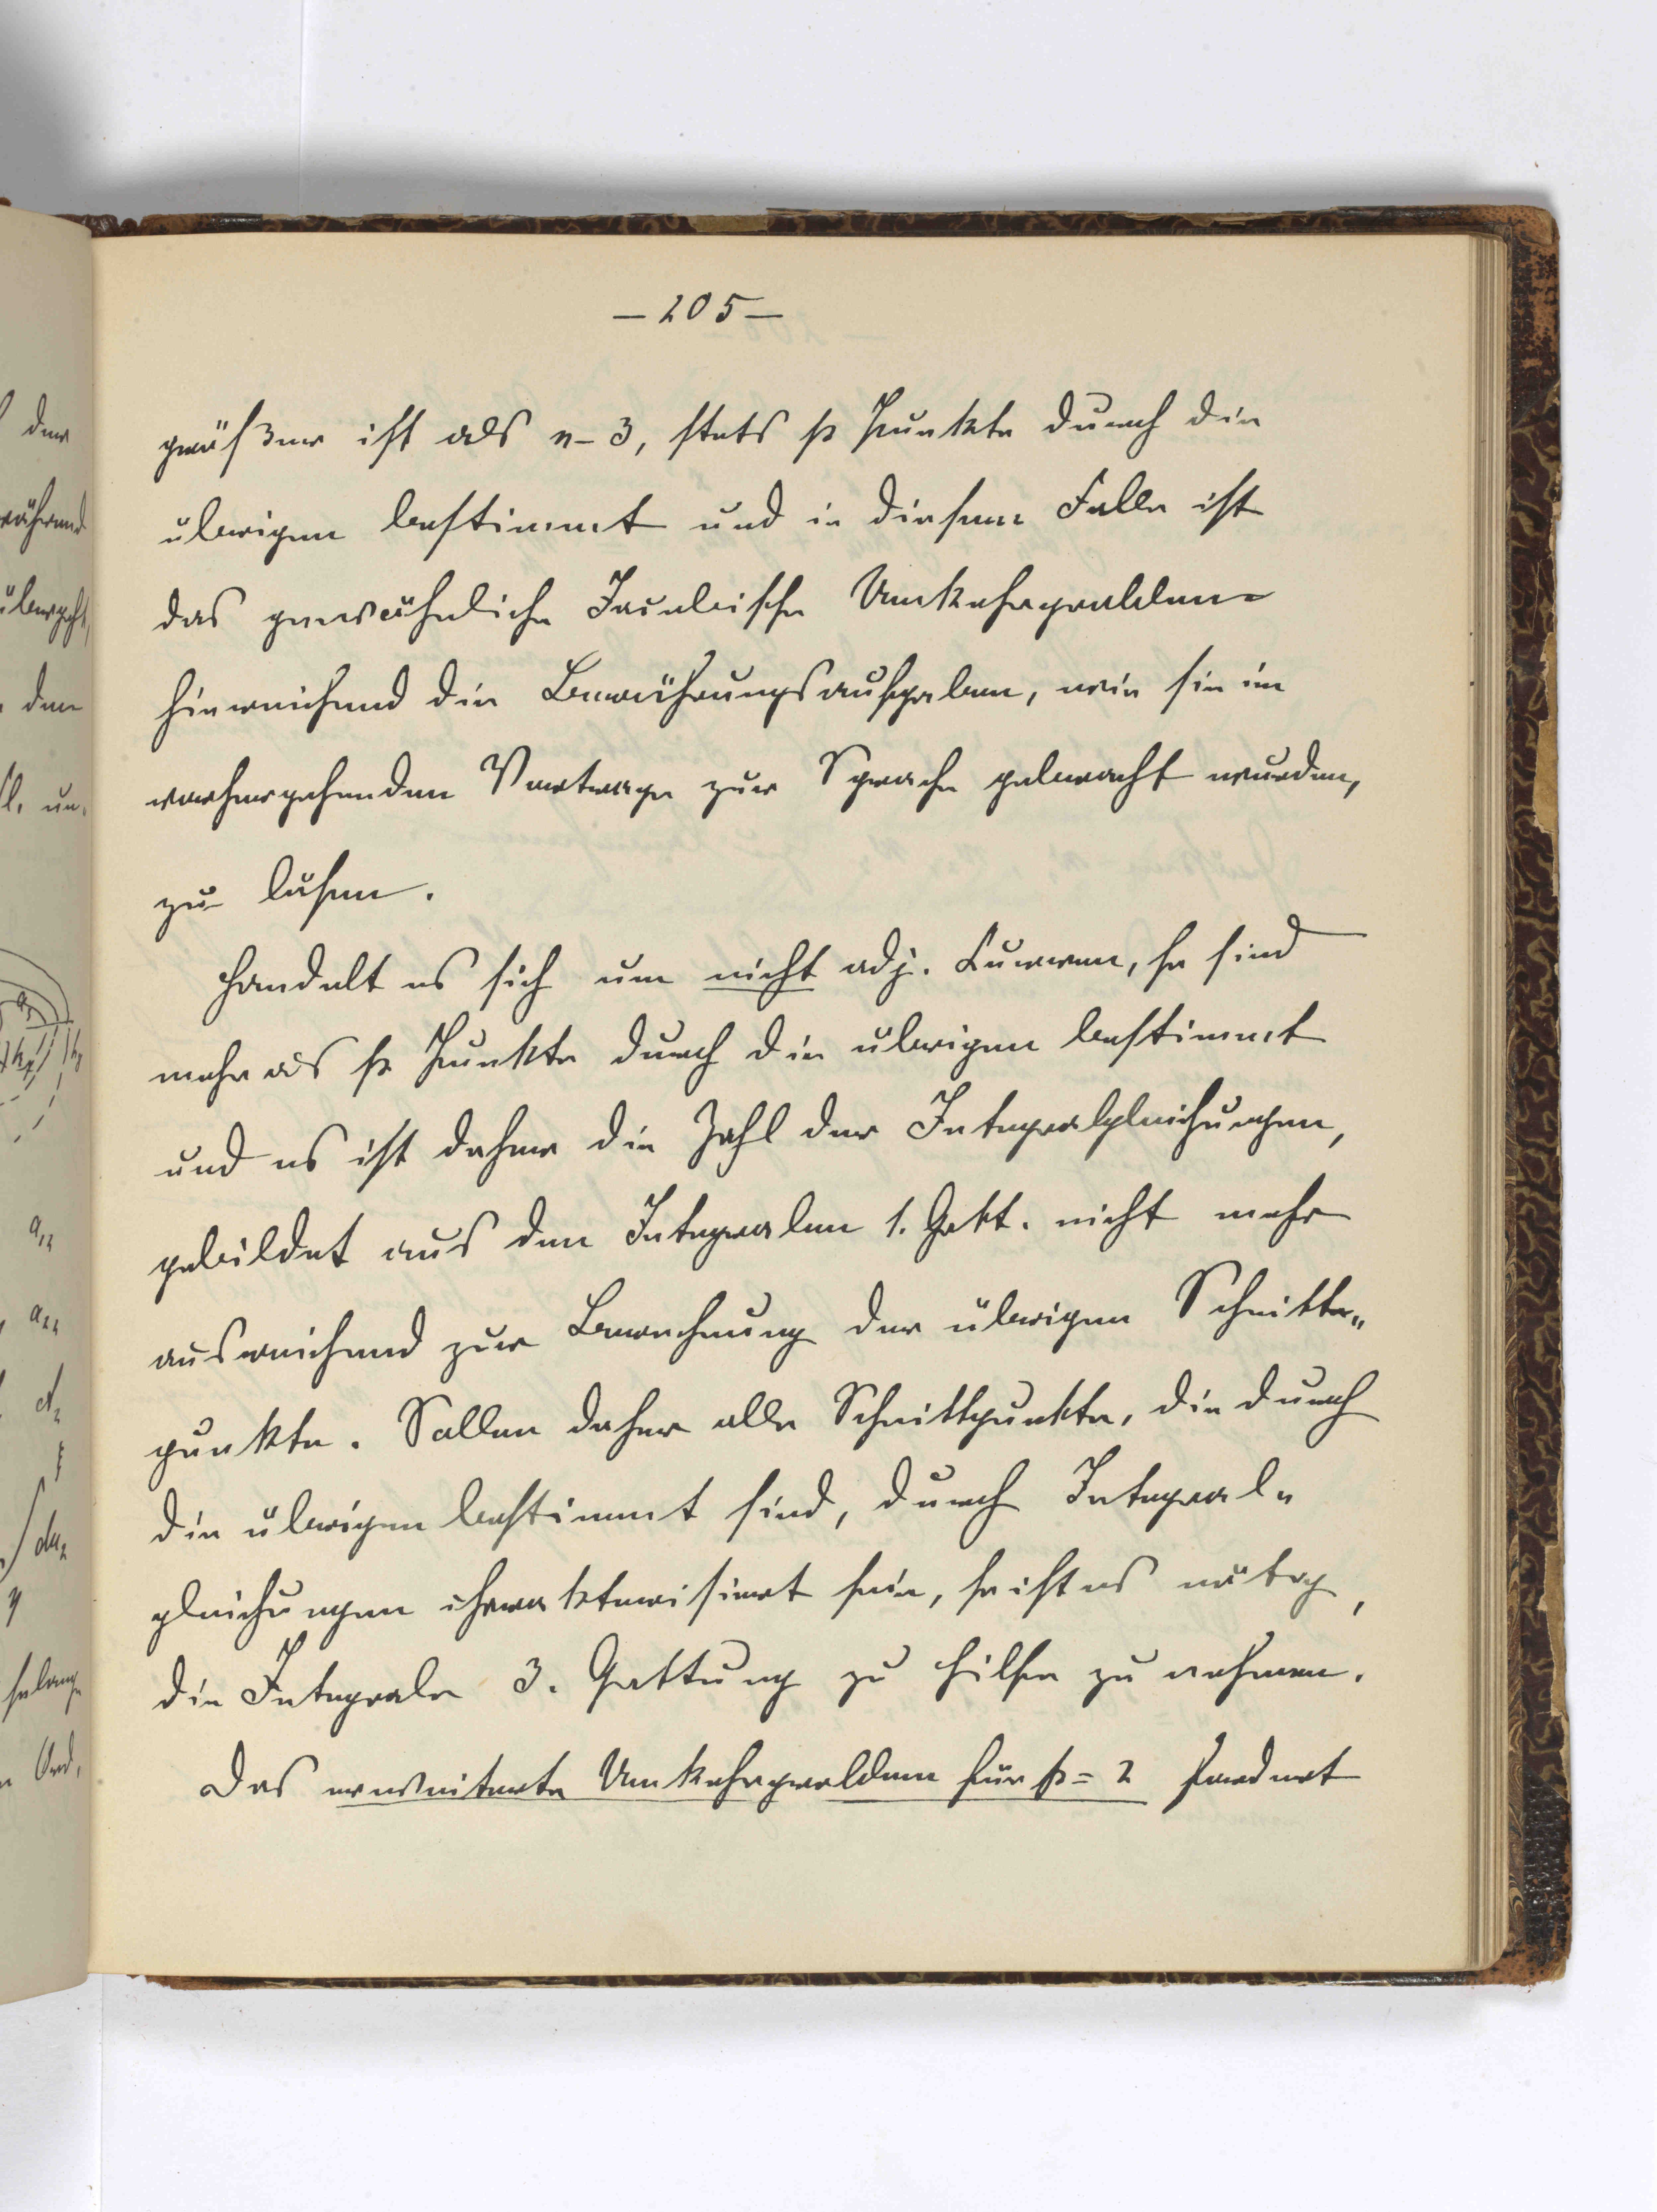 — 205 —
größer ist als n-3, stets p Punkte durch die
übrigen bestimmt und in diesem Falle ist
das gewöhnliche Jacobische Umkehrproblem
hinreichend die Berührungsaufgaben, wie sie im
vorhergehenden Vortrage zur Sprache gebracht wurden,
zu lösen.
Handelt es sich um nicht adj. Curven, so sind
mehr als p Punkte durch die übrigen bestimmt
und es ist daher die Zahl der Integralgleichungen,
gebildet aus den Integralen 1. Gatt. nicht mehr
ausreichend zur Berechnung der übrigen Schnitt„
punkte. Sollen daher alle Schnittpunkte, die durch
die übrigen bestimmt sind, durch Integral„
gleichungen charakterisiert sein, so ist es nötig,
die Integrale 3. Gattung zu Hilfe zu nehmen.
Das erweiterte Umkehrproblem für p = 2 fordert
der
während
übergeht,
den
un„
a₁₂
a₂₂